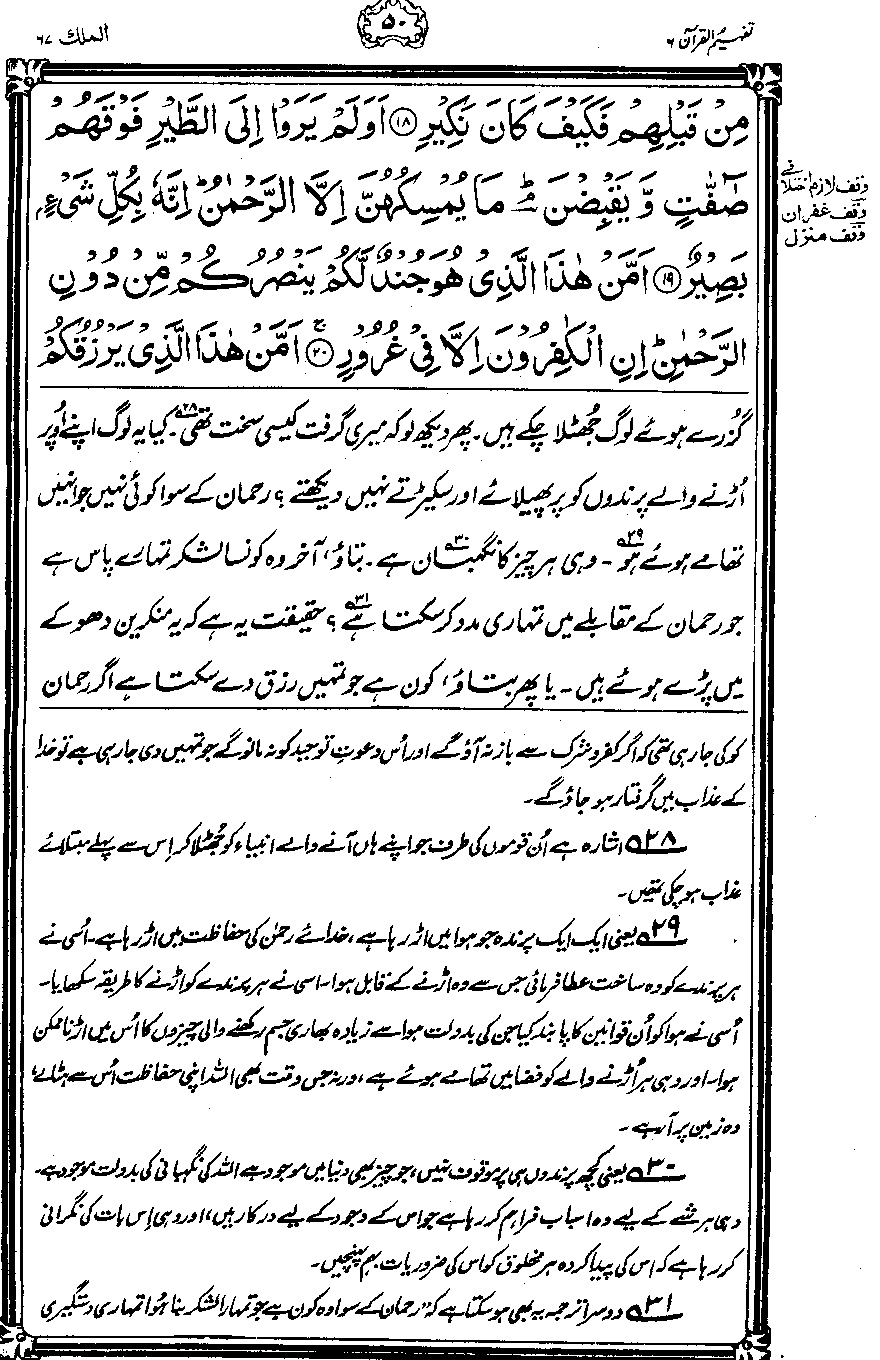 تفہیم القرآن ۶
۵۰
الملک ۶۷
مِنۡ قَبۡلِهِمۡ فَكَيۡفَ كَانَ نَكِيۡرِ ﴿۱۸﴾ اَوَلَمۡ يَرَوۡا اِلَى الطَّيۡرِ فَوۡقَهُمۡ
صٰٓفّٰتٍ وَّيَقۡبِضۡنَ ؔۘ مَا يُمۡسِكُهُنَّ اِلَّا الرَّحۡمٰنُ ؕ اِنَّهٗ بِكُلِّ شَىۡءٍۢ
بَصِيۡرٌ ﴿۱۹﴾ اَمَّنۡ هٰذَا الَّذِىۡ هُوَ جُنۡدٌ لَّكُمۡ يَنۡصُرُكُمۡ مِّنۡ دُوۡنِ
الرَّحۡمٰنِ ؕ اِنِ الۡكٰفِرُوۡنَ اِلَّا فِىۡ غُرُوۡرٍ ۚ﴿۲۰﴾ اَمَّنۡ هٰذَا الَّذِىۡ يَرۡزُقُكُمۡ
وقف لازم اختلافی
وقف غفران
وقف منزل
گزرے ہوئے لوگ جُھٹلا چکے ہیں۔ پھر دیکھ لو کہ میری گرفت کیسی سخت تھی۲۸۔ کیا یہ لوگ اپنے اُوپر
اُڑنے والے پرندوں کو پر پھیلائے اور سکیڑتے نہیں دیکھتے؟ رحمان کے سوا کوئی نہیں جو انہیں
تھامے ہوئے ہو۲۹۔ وہی ہر چیز کا نگہبان ہے۳۰۔ بتاؤ، آخر وہ کونسا لشکر تمہارے پاس ہے
جو رحمان کے مقابلے میں تمہاری مدد کر سکتا ہے۳۱؟ حقیقت یہ ہے کہ یہ منکرین دھوکے
میں پڑے ہوئے ہیں۔ یا پھر بتاؤ، کون ہے جو تمہیں رزق دے سکتا ہے اگر رحمان
کو کی جا رہی تھی کہ اگر کفر و شرک سے باز نہ آؤ گے اور اُس دعوتِ توحید کو نہ مانو گے جو تمہیں دی جا رہی ہے تو خدا
کے عذاب میں گرفتار ہو جاؤ گے۔
۲۸ اشارہ ہے اُن قوموں کی طرف جو اپنے ہاں آنے والے انبیاء کو جُھٹلا کر اِس سے پہلے مبتلائے
عذاب ہو چکی تھیں۔
۲۹ یعنی ایک ایک پرندہ جو ہوا میں اڑ رہا ہے، خدائے رحمٰن کی حفاظت میں اڑ رہا ہے۔ اُسی نے
ہر پرندے کو وہ ساخت عطا فرمائی جس سے وہ اڑنے کے قابل ہوا۔ اسی نے ہر پرندے کو اڑنے کا طریقہ سکھایا۔
اُسی نے ہوا کو اُن قوانین کا پابند کیا جن کی بدولت ہوا سے زیادہ بھاری جسم رکھنے والی چیزوں کا اُس میں اڑنا ممکن
ہوا۔ اور وہی ہر اُڑنے والے کو فضا میں تھامے ہوئے ہے، ورنہ جس وقت بھی اللہ اپنی حفاظت اُس سے ہٹا لے،
وہ زمین پر آ رہے۔
۳۰ یعنی کچھ پرندوں ہی پر موقوف نہیں، جو چیز بھی دنیا میں موجود ہے اللہ کی نگہبانی کی بدولت موجود ہے۔
وہی ہر شے کے لیے وہ اسباب فراہم کر رہا ہے جو اس کے وجود کے لیے درکار ہیں، اور وہی اِس بات کی نگرانی
کر رہا ہے کہ اس کی پیدا کردہ ہر مخلوق کو اس کی ضروریات بہم پہنچیں۔
۳۱ دوسرا ترجمہ یہ بھی ہو سکتا ہے کہ ”رحمان کے سوا وہ کون ہے جو تمہارا لشکر بنا ہوا تمہاری دستگیری